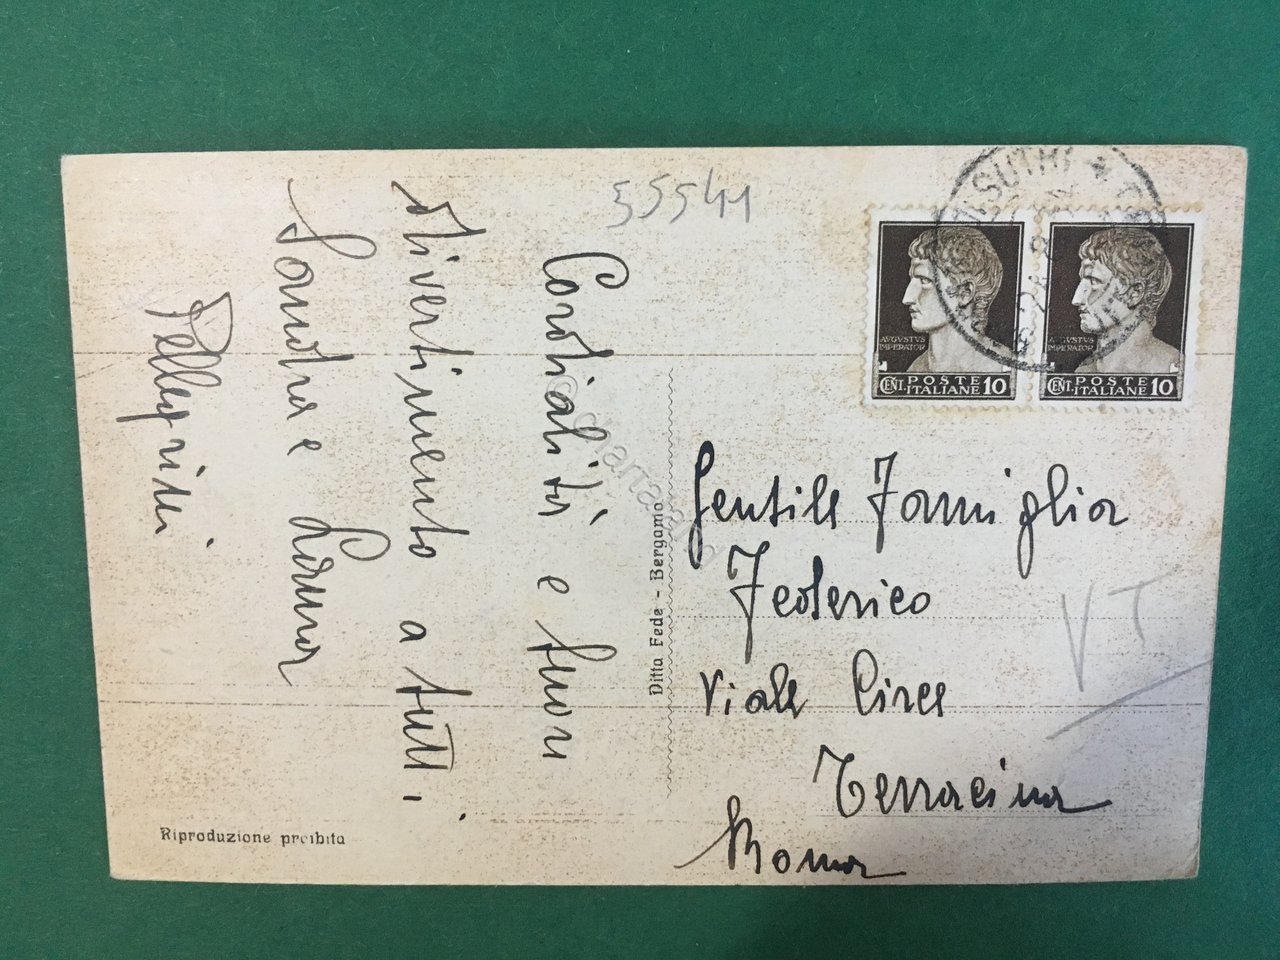 55541
Cordialità e buon
divertimento a tutti.
Sandra e Lanna
Pellegrini
Riproduzione proibita
Ditta Fede - Bergamo
AUGUSTUS
IMPERATOR
CENT. POSTE ITALIANE 10
AUGUSTUS
IMPERATOR
CENT. POSTE ITALIANE 10
Gentile Famiglia
Federico
Viale Circe
Terracina
Roma
VT